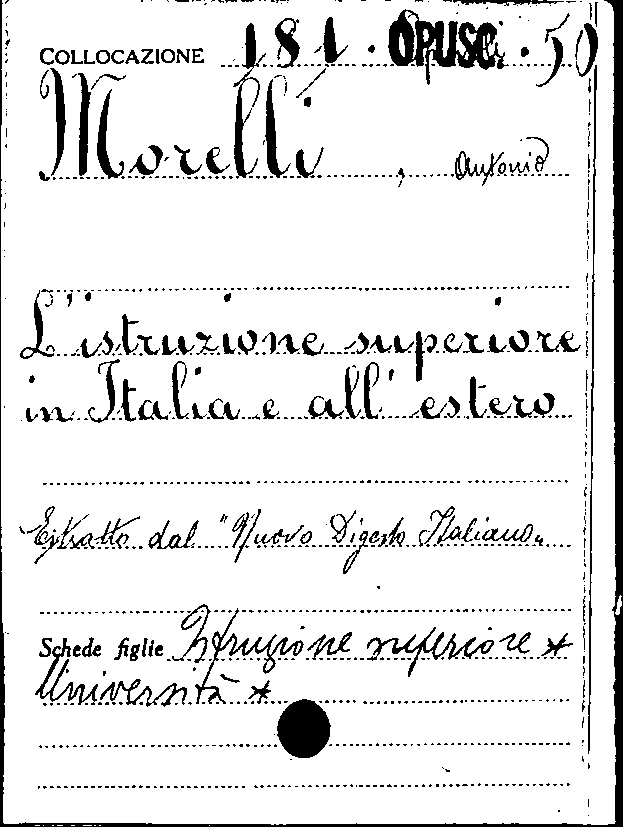 COLLOCAZIONE 181 . OPUSC. . 50
Morelli , Antonio
L'istruzione superiore
in Italia e all'estero
Estratto dal "Nuovo Digesto Italiano„
Schede figlie Istruzione superiore *
Università *